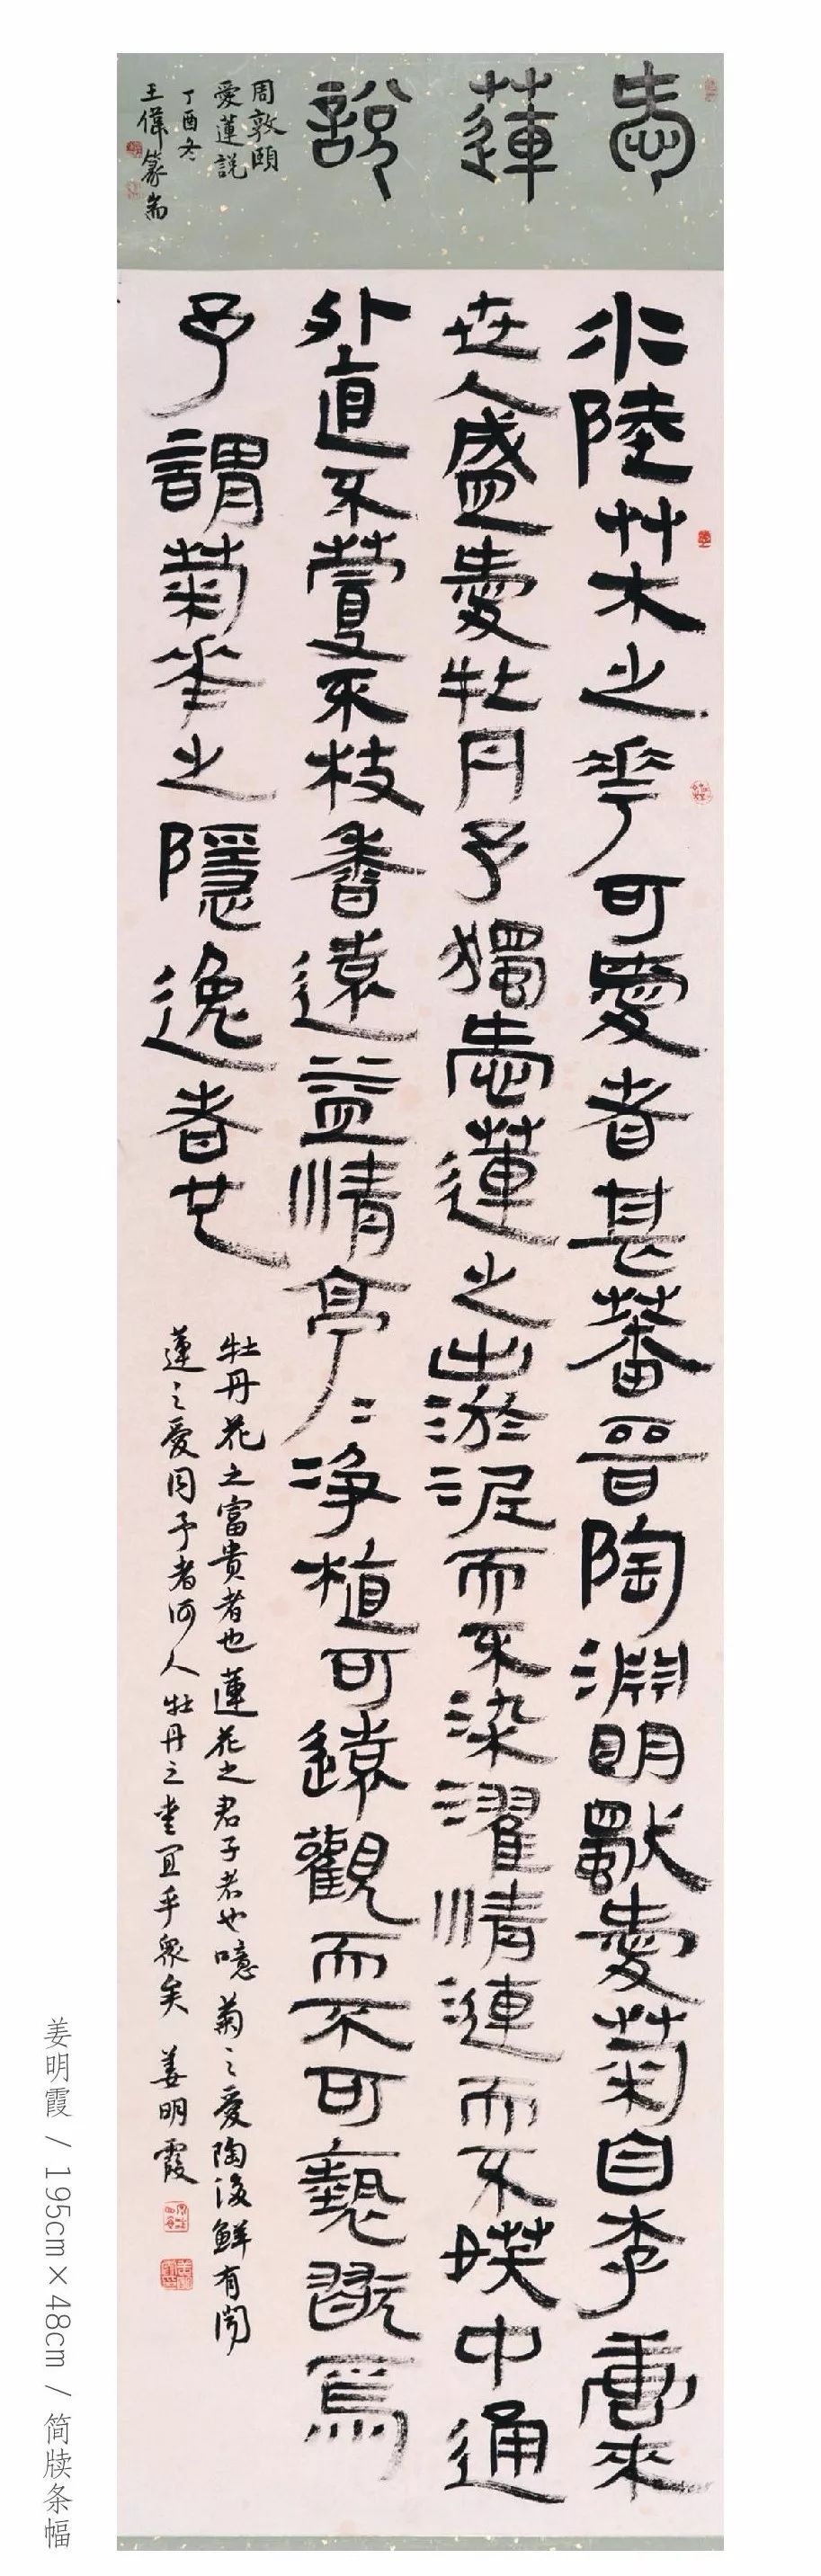 愛蓮說
周敦頤
愛蓮說
丁酉冬
王偉篆耑
水陸艸木之華可愛者甚蕃晉陶淵明獨愛菊自李唐來
世人盛愛牡丹予獨愛蓮之出淤泥而不染濯清漣而不妖中通
外直不蔓不枝香遠益清亭〻淨植可遠觀而不可褻翫焉
予謂菊華之隱逸者也
牡丹花之富貴者也蓮花之君子者也噫菊〻愛陶後鮮有聞
蓮〻愛同予者何人牡丹之愛宜乎衆矣 姜明霞
姜明霞 / 195cm×48cm / 简牍条幅